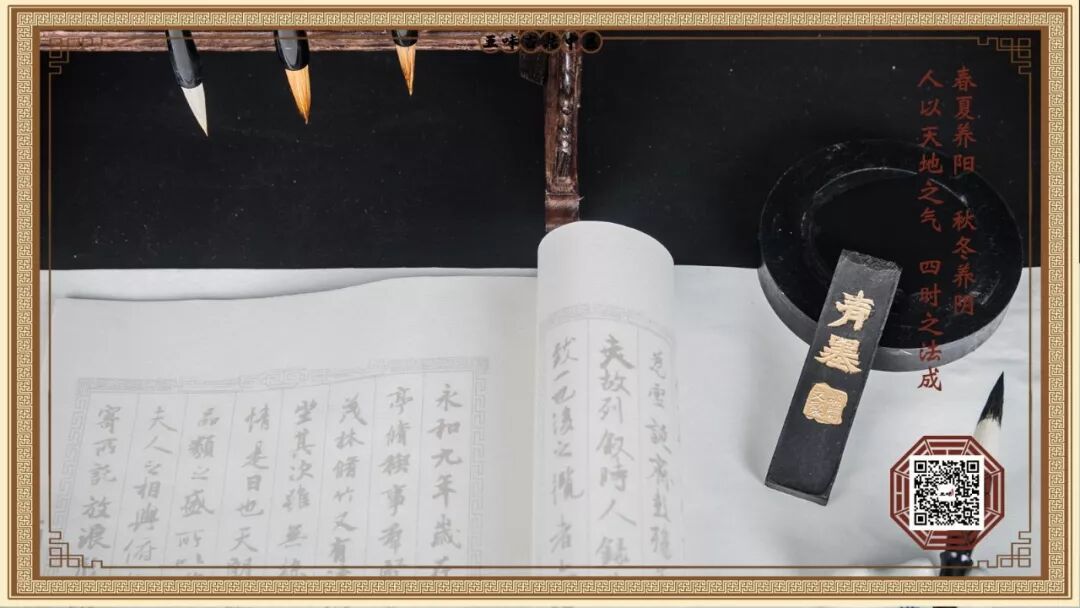 春夏养阳 秋冬养阴
人以天地之气 四时之法成
青墨
夫故列叙時人録
致一也後之覽者
永和九年歲在
亭脩禊事羣
茂林脩竹又有
坐其次雖無
情是日也天朗
品類之盛所以
夫人之相與俯
寄所託放浪